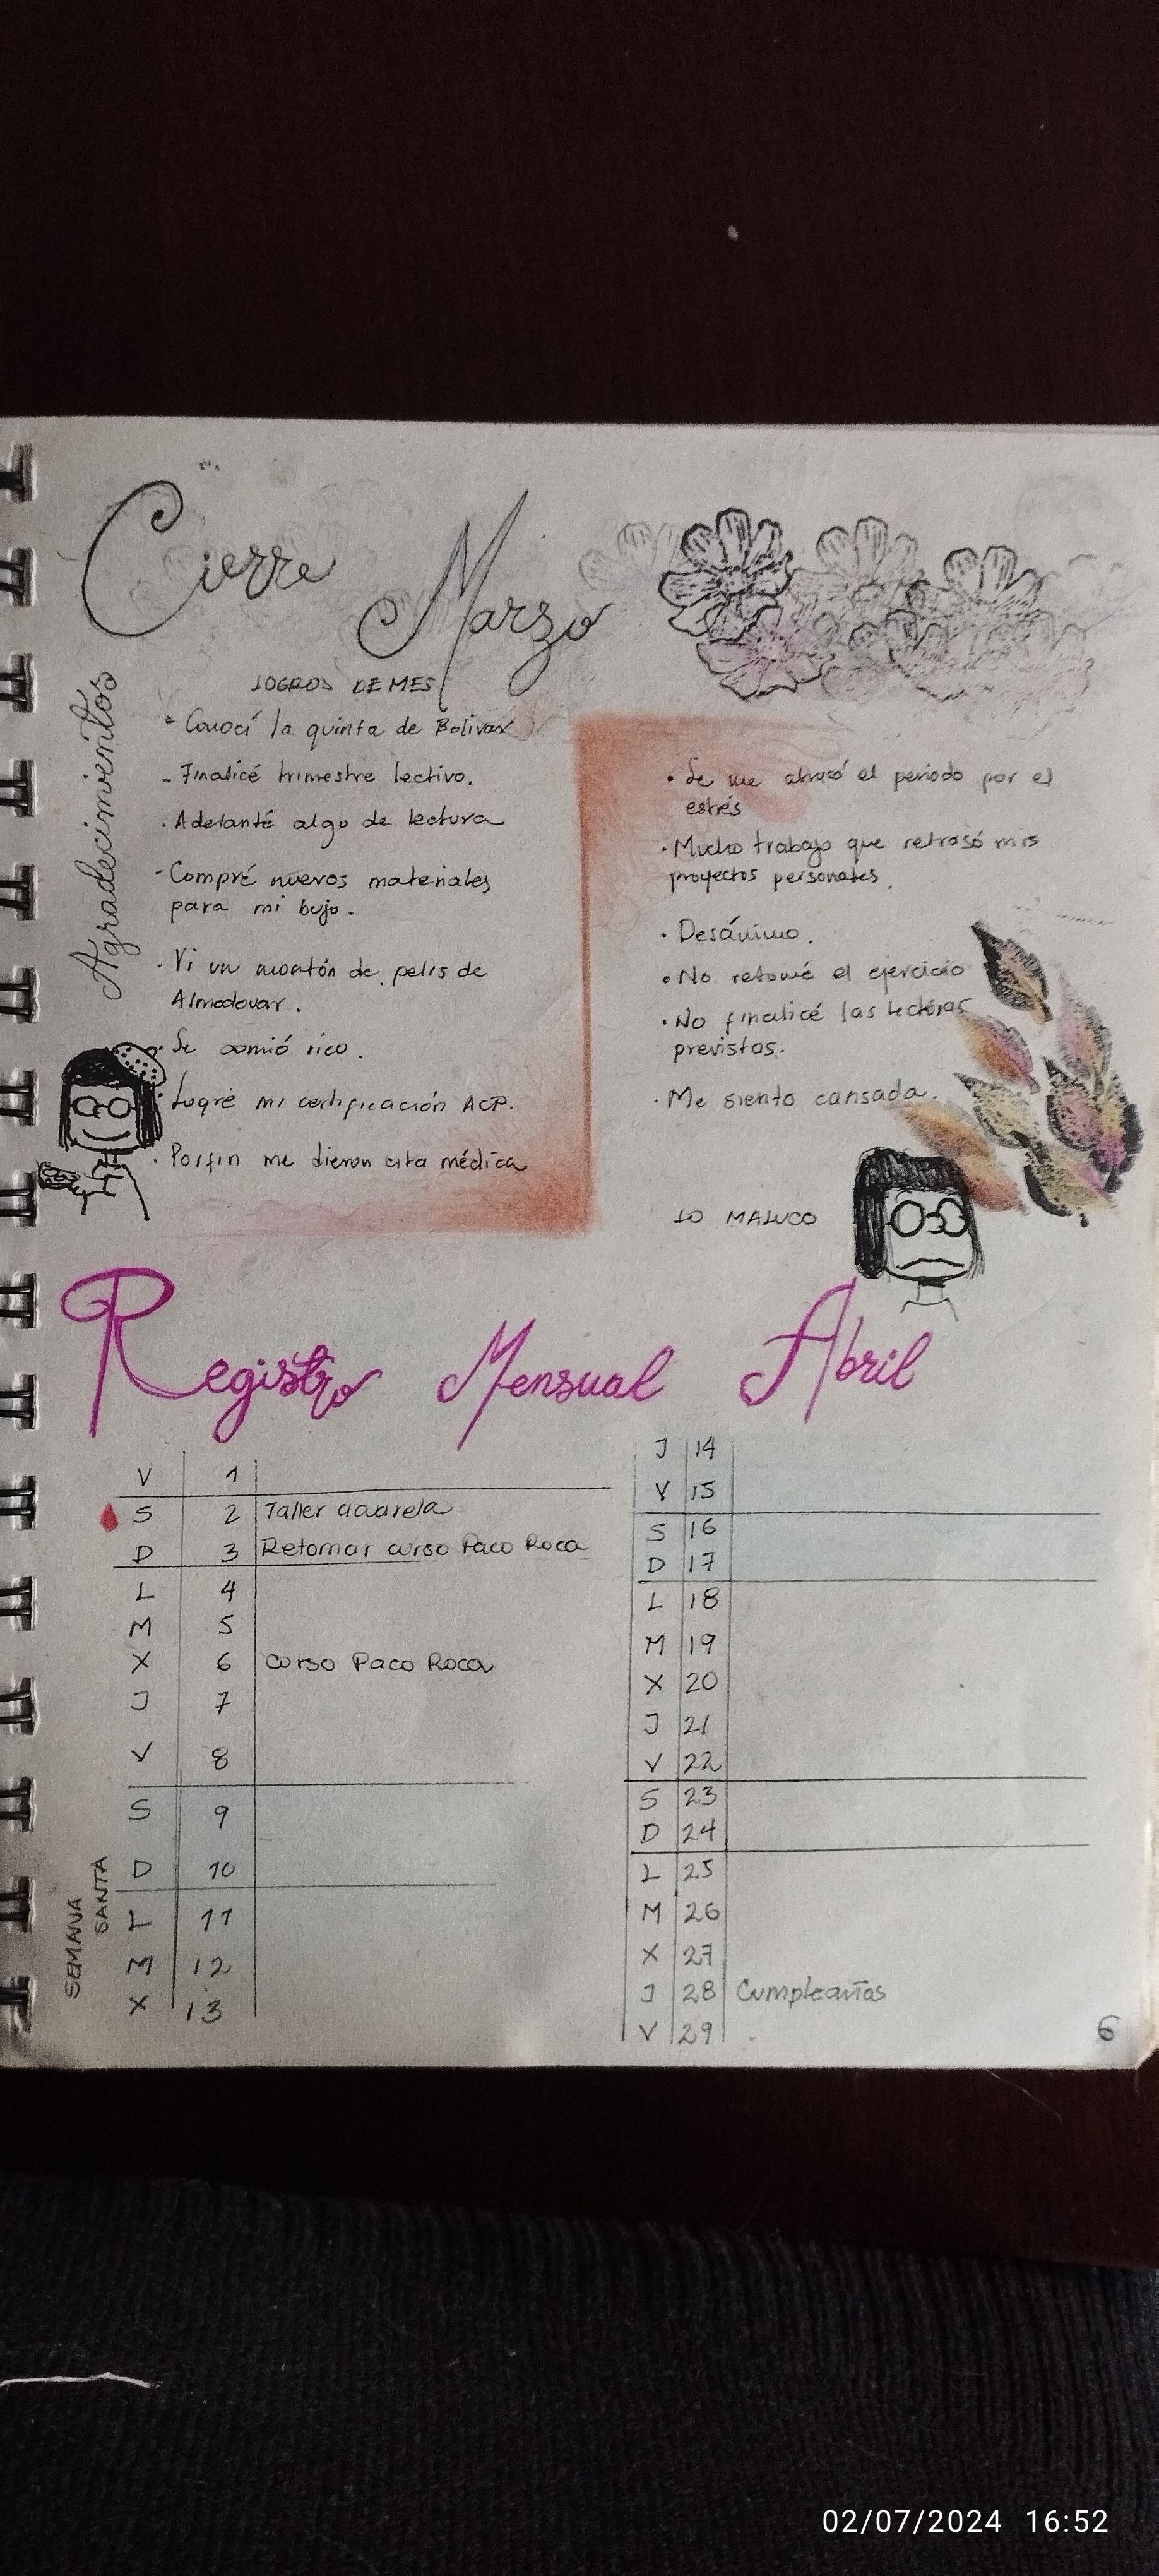 Cierre Marzo
Agradecimientos
LOGROS DE MES
• Conocí la quinta de Bolivar
- Finalicé trimestre lectivo.
. Adelanté algo de lectura
- Compré nuevos materiales
para mi bujo.
. Vi un montón de pelis de
Almodovar.
. Se comió rico.
. Logré mi certificación ACP.
. Porfin me dieron cita médica
• Se me atrasó el periodo por el
estrés
. Mucho trabajo que retrasó mis
proyectos personales.
. Desánimo.
• No retomé el ejercicio
. No finalicé las lecturas
previstas.
. Me siento cansada.
LO MALUCO
Registro Mensual Abril
V 1
S 2 Taller acuarela
D 3 Retomar curso Paco Roca
L 4
M 5
X 6 Curso Paco Roca
J 7
V 8
S 9
D 10
SEMANA
SANTA
L 11
M 12
X 13
J 14
V 15
S 16
D 17
L 18
M 19
X 20
J 21
V 22
S 23
D 24
L 25
M 26
X 27
J 28 Cumpleaños
V 29
6
02/07/2024 16:52